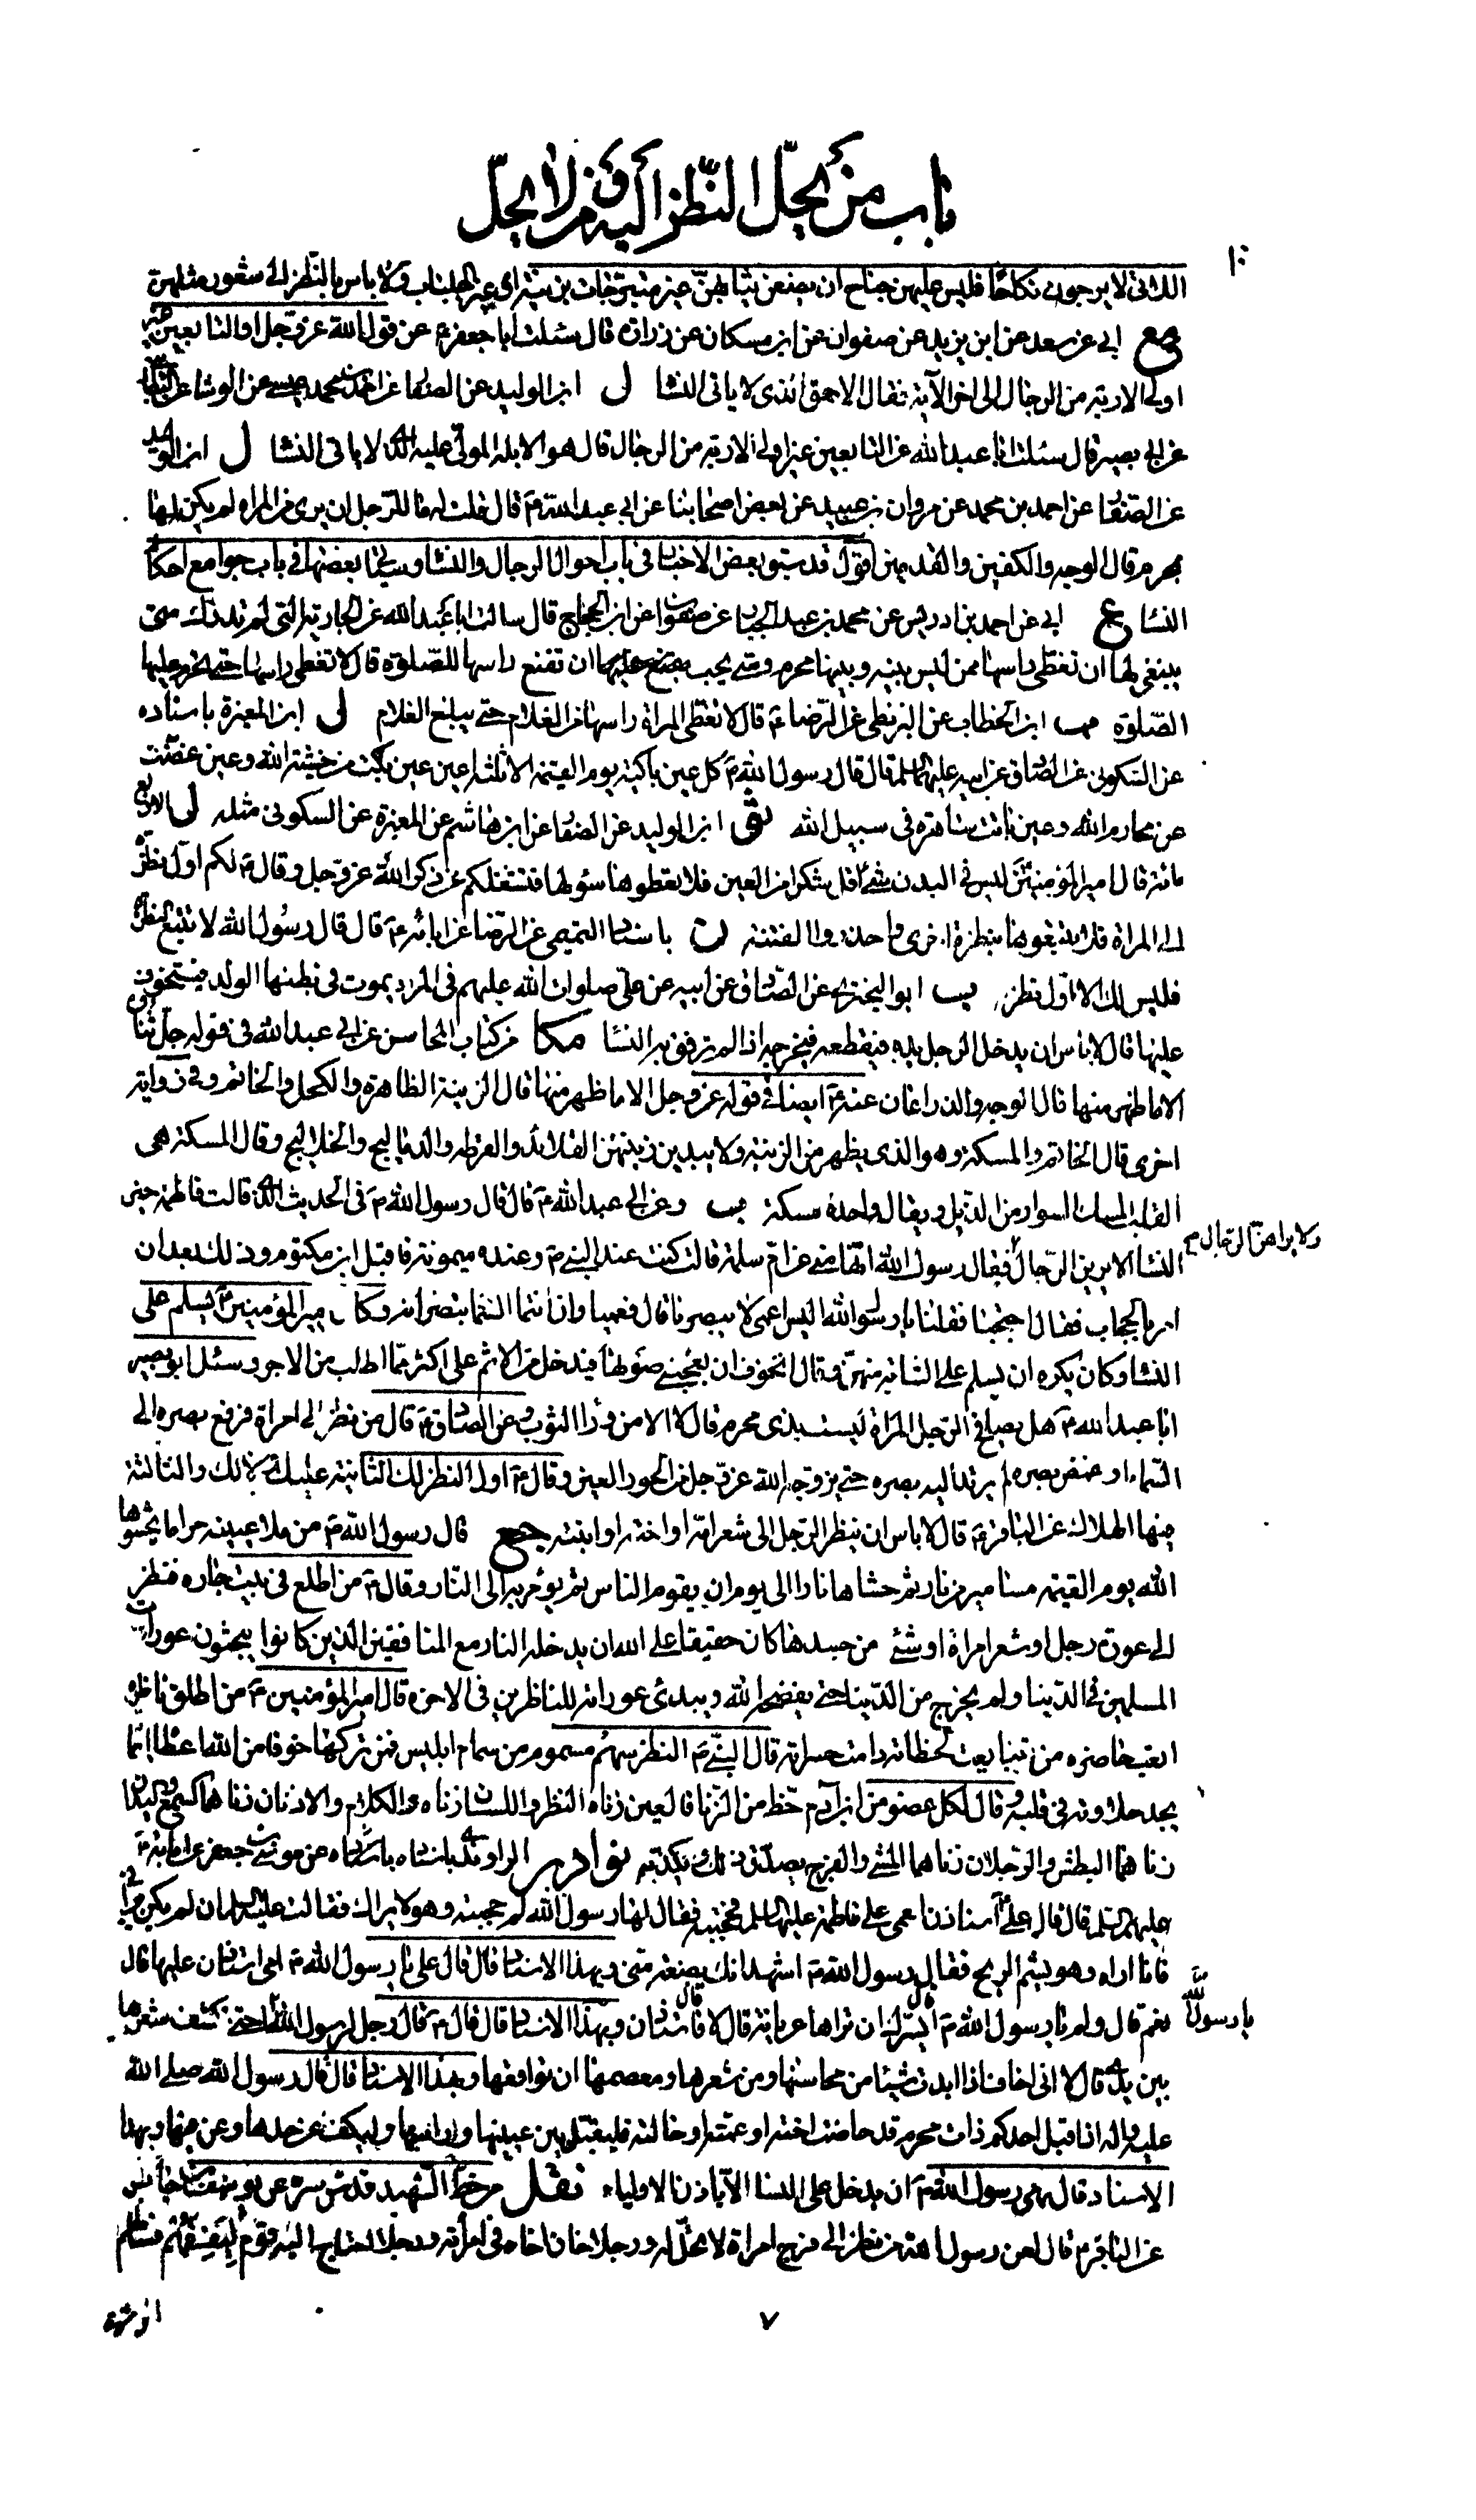 باب من يحلّ النّظر اليه و من لا يحلّ
١٠
اللاتى لا يرجون نكاحًا فليس عليهن جناح ان يضعن ثيابهنّ غير متبرّجات بزينة اى غير الجلباب و لا باس بالنّظر الى شعور مثلهنّ
مع ابى عن سعد عن ابن يزيد عن صفوان عن ابن مسكان عن زرارة قال سئلت ابا جعفر ع عن قول الله عزّ و جل او التابعين غير
اولى الاربة من الرجال الى اخر الآية فقال الاحمق الذى لا ياتى النسا ل ابن الوليد عن الصفا عن احمد بن محمد بن عيسى عن الوشا عن
عن ابى بصير قال سئلت ابا عبد الله عن التابعين غير اولى الاربة من الرجال قال هو الابله المولّى عليه الذى لا ياتى النسا ل ابن الوليد
عن الصفا عن احمد بن محمد عن مروان بن عبيد عن بعض اصحابنا عن ابى عبد الله ع قال قلت له ما للرّجل ان يرى من المراة اذا لم يكن لها
بمحرم قال الوجه و الكفين و القدمين اقول قد سبق بعض الاخبار فى باب احوال الرجال و النسا و سياتى بعضها فى باب جوامع احكا
النسا ع ابى عن احمد بن ادريس عن محمد بن عبد الجبا عن صفوان عن ابن الحجاج قال سالت ابا عبد الله عن الجارية التى لم تدرك متى
ينبغى لها ان تغطى راسها ممن ليس بينه و بينها محرم و متى يجب عليها ان تقنع راسها للصّلوة قال لا تغطى راسها حتى تحرم عليها
الصّلوة ب ابن الخطاب عن البزنطى عن الرّضا ع قال لا تغطى المراة راسها من الغلام حتى يبلغ الغلام ل ابن المغيرة باسناده
عن السكونى عن الصّادق عن ابيه عليهما السلم قال قال رسول الله ص كل عين باكية يوم القيمة الا ثلثة اعين عين بكت من خشية الله و عين غضّت
عن محارم الله و عين باتت ساهرة فى سبيل الله ثو ابن الوليد عن الصفا عن ابن هاشم عن المغيرة عن السكونى مثله ل الاربع
مائة قال امير المؤمنين ليس فى البدن شئ اقل شكرا من العين فلا تعطوها سؤلها فتشغلكم عن ذكر الله عزّ و جل و قال ع لكم اوّل نظرة
الى المراة فلا تتبعوها بنظرة اخرى و احذروا الفتنة ن باسنا التميمى عن الرّضا عن ابائه ع قال قال رسول الله لا تتبع النظرة
فليس لك الا اوّل نظرة ب ابو البخترى عن الصّادق عن ابيه عن علىّ صلوات الله عليهم فى المراة يموت فى بطنها الولد فيتخوف
عليها قال لا باس ان يدخل الرجل يده فيقطعه فيخرجه اذا لم ترفق به النسا مكا من كتاب المحاسن عن ابى عبد الله فى قوله جلّ ثنا
الا ما ظهر منها قال الوجه و الذراعان عنه ع ايضا فى قوله عز و جل الا ما ظهر منها قال الزينة الظاهرة الكحل و الخاتم و فى رواية
اخرى قال الخاتم و المسكة و هو الذى يظهر من الزينة و لا يبدين زينتهن القلائد و القرطه و الدماليج و الخلاخيل و قال المسكة هى
القلب المسك السوار من الذبل و يقال واحده مسكة ب و عن ابى عبد الله ع قال قال رسول الله ص فى الحديث الذى قالت فاطمة خير
النسا الا يرين الرّجال فقال رسول الله انّها منّى عن امّ سلمة قالت كنت عند النبى ص و عنده ميمونة فاقبل ابن مكتوم و ذلك بعد ان
و لا يراهنّ الرّجال
امر بالحجاب فقال احتجبا فقلنا يا رسول الله اليس اعمى لا يبصرنا قال افعميا وان انتما الستما تبصرانه و كان امير المؤمنين ع يسلم على
النسا و كان يكره ان يسلم على الشابة منهنّ و قال اتخوف ان يعجبنى صوتها فيدخل من الاثم على اكثر ممّا اطلب من الاجر و سئل ابو بصير
ابا عبد الله ع هل يصافح الرّجل المراة ليست بذى محرم قال لا الا من وراء الثوب و عن الصّادق ع قال من نظر الى امراة فرفع بصره الى
السّماء او غمض بصره لم يرتد اليه بصره حتى يزوّجه الله عزّ و جل من الحور العين و قال ع اول النظر لك الثانية عليك لا لك و الثالثة
فيها الهلاك عن الباقر ع قال لا باس ان ينظر الرّجل الى شعر امّه او اخته او ابنته جع قال رسول الله ص من ملا عينيه حراما يحشوها
الله يوم القيمة مسامير من نار ثم حشاها نارا الى يوم ان يقوم الناس ثم يؤمر به الى النّار و قال ع من اطلع فى بيت جاره فنظر
الى عورة رجل او شعر امراة او شئ من جسدها كان حقيقا على الله ان يدخله النار مع المنافقين الذين كانوا يبحثون عورات
المسلمين فى الدّنيا و لم يخرج من الدّنيا حتى يفضحه الله و يبدى عوراته للناظرين فى الاخرة قال امير المؤمنين ع من اطلق ناظره
اتعب خاطره من تتابعت لحظاته دامت حسراته قال النبىّ ص النظر سهم مسموم من سهام ابليس فمن تركها خوفا من الله اعطاه الله ايمانا
يجد حلاوته فى قلبه و قال لكل عضو من ابن آدم حظ من الزّنا فالعين زناه النظر و اللسان زناه الكلام و الاذنان زناهما السمع و اليدان
زناهما البطش و الرّجلان زناهما المشى و الفرج يصدّق ذلك و يكذّبه نوادر الراوندى باسناده عن موسى بن جعفر عن ابائه ع
عليهم السّلم قال قال على ع استاذن اعمى على فاطمة عليها السلم فحجبته فقال لها رسول الله لم حجبته و هو لا يراك فقالت عليها السلم ان لم يكن يرانى
فانا اراه و هو يشم الريح فقال رسول الله ص اشهد انك بضعة منى و بهذا الاسناد قال قال على ع يا رسول الله ص امى استاذن عليها قال
نعم قال و لم يا رسول الله ص قال ايسرّك ان تراها عريانة قال لا قال فاستاذن و بهذا الاسناد قال قال ع قال رجل لرسول الله اختى تكشف شعرها
يا رسول الله
بين يدى قال لا انى اخاف اذا ابدت شيئا من محاسنها و من شعرها و معصمها ان تواقعها و بهذا الاسناد قال قال رسول الله صلى الله
عليه و اله اذا قبل احدكم ذات محرم قد حاضت اخته او عمته او خالته فليقبل بين عينيها و راسها و ليكف عن خدها و عن فيها و بهذا
الاسناد قال نهى رسول الله ص ان يدخل على النسا الا باذن الاولياء نقل من خطّ الشّهيد قدّس سرّه عن يوسف بن جابر
عن الباقر ع قال لعن رسول الله من نظر الى فرج امراة لا تحلّ له و رجلا خان اخاه فى امراته و رجلا احتاج النّاس اليه ليفقههم فسالهم
الرشوة
٧